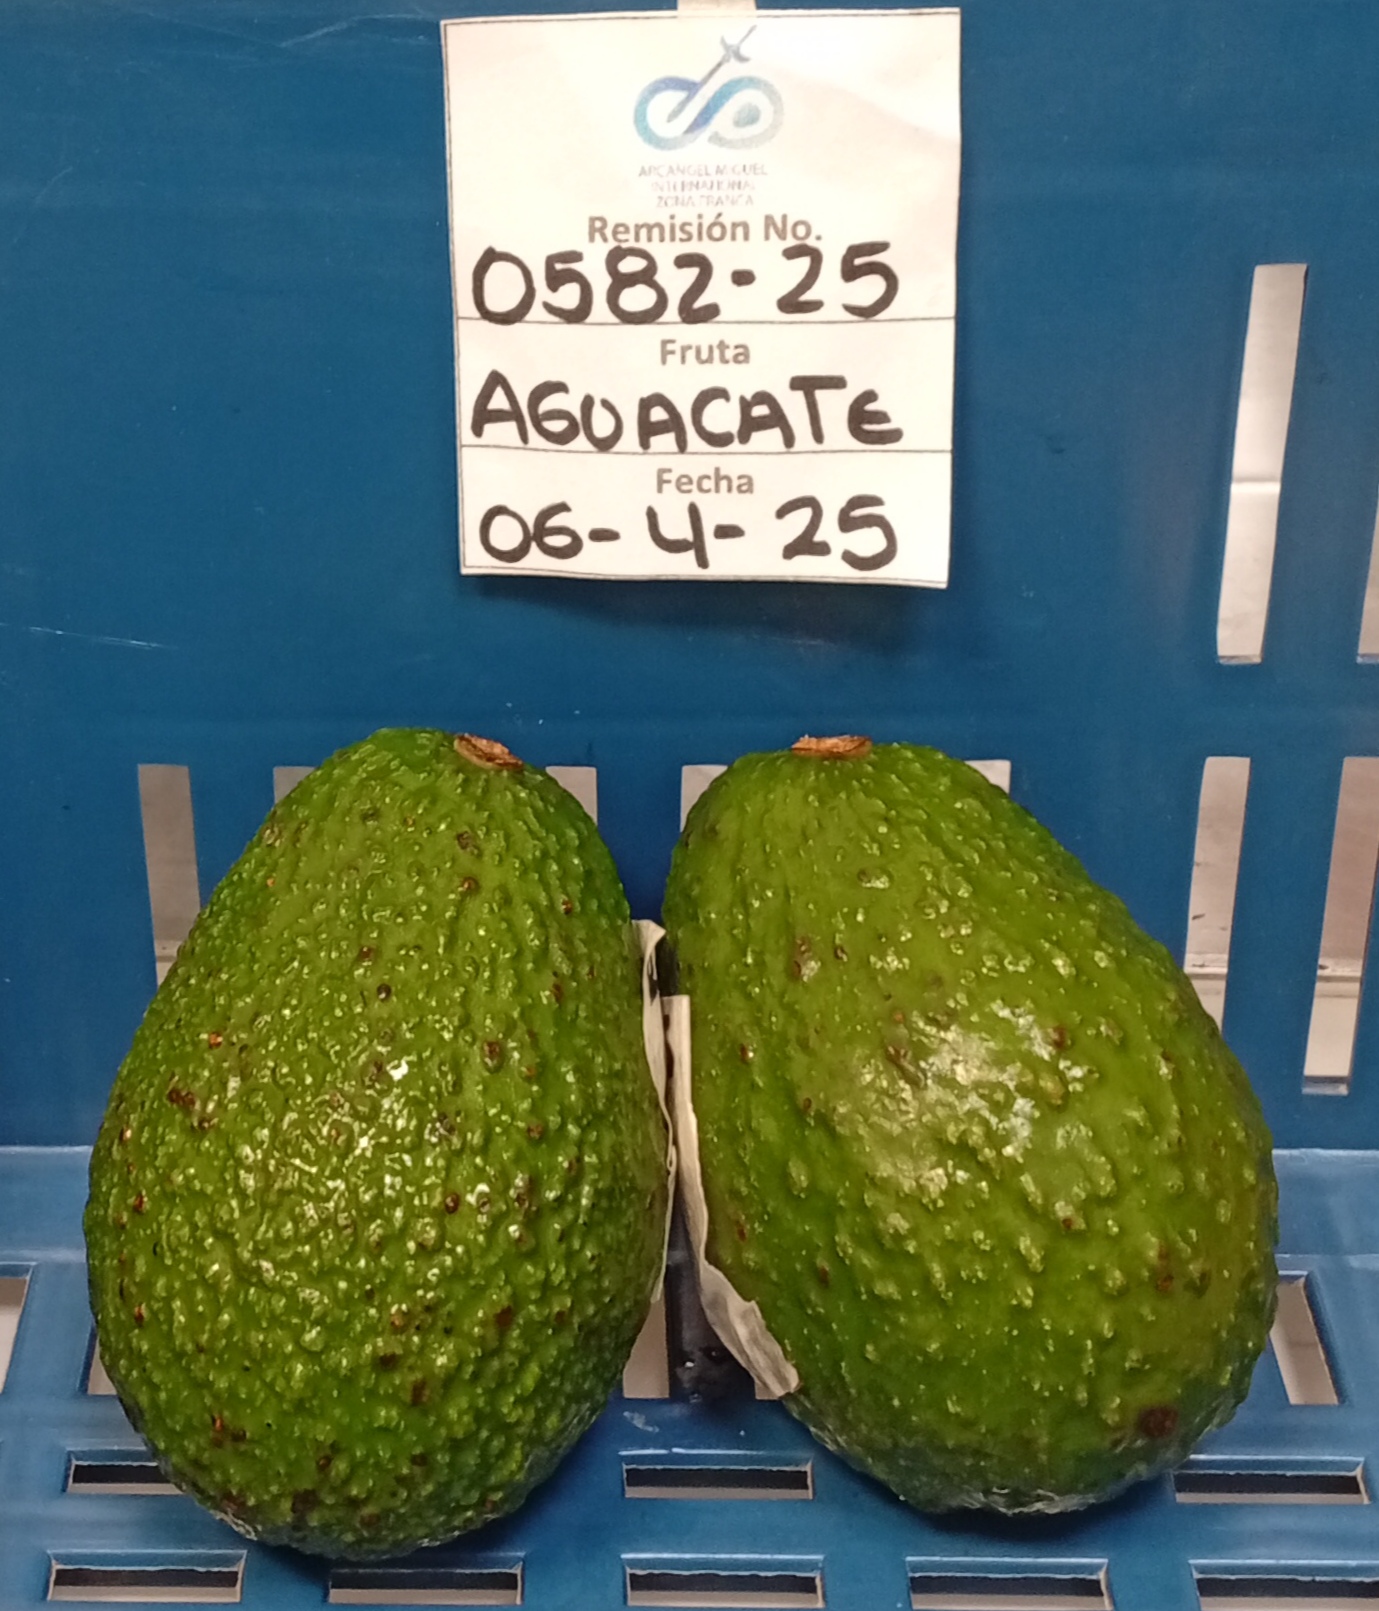 ARCANGEL MIGUEL
INTERNATIONAL
ZONA FRANCA
Remisión No.
0582-25
Fruta
AGUACATE
Fecha
06-4-25